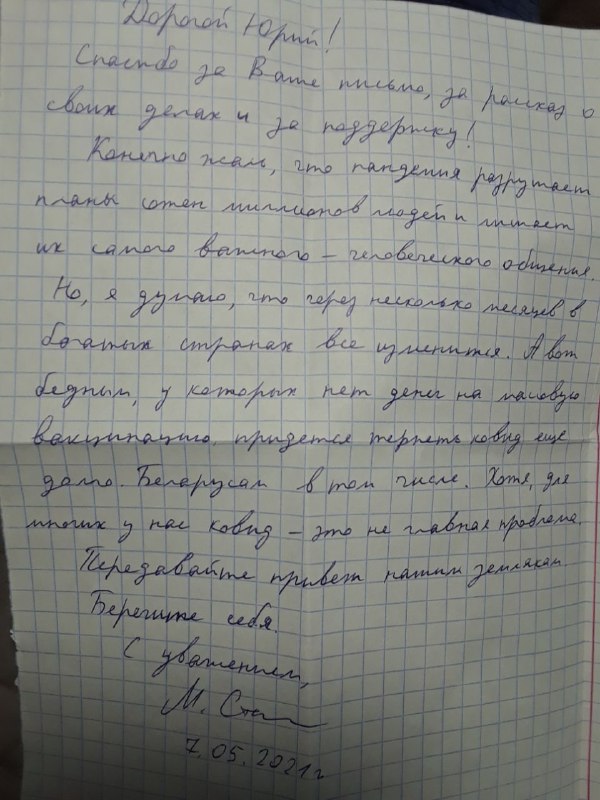 Дорогой Юрий!
Спасибо за Ваше письмо, за рассказ о
своих делах и за поддержку!
Конечно жаль, что пандемия разрушает
планы сотен миллионов людей и лишает
их самого важного – человеческого общения.
Но, я думаю, что через несколько месяцев в
богатых странах все изменится. А вот
бедным, у которых нет денег на массовую
вакцинацию, придется терпеть ковид еще
долго. Беларусам в том числе. Хотя, для
многих у нас ковид – это не главная проблема.
Передавайте привет нашим землякам.
Берегите себя.
С уважением,
М.
7.05.2021 г